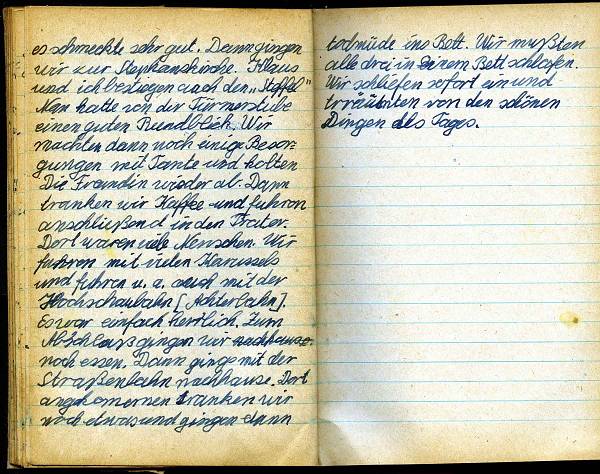 es schmeckte sehr gut. Dann gingen
wir zur Stephanskirche. Klaus
und ich bestiegen auch den „Steffel"
Man hatte von der Türmerstube
einen guten Rundblick. Wir
machten dann noch einige Besor-
gungen mit Tante und holten
Die Freundin wieder ab. Dann
tranken wir Kaffee und fuhren
anschließend in den Prater.
Dort waren viele Menschen. Wir
fuhren mit vielen Karussels
und fuhren u. a. auch mit der
Hochschaubahn [Achterbahn].
Es war einfach herrlich. Zum
Abschluß gingen wir nachhause
noch essen. Dann gings mit der
Straßenbahn nachhause. Dort
angekommen tranken wir
noch etwas und gingen dann
todmüde ins Bett. Wir mußten
alle drei in einem Bett schlafen.
Wir schliefen sofort ein und
träumten von den schönen
Dingen des Tages.